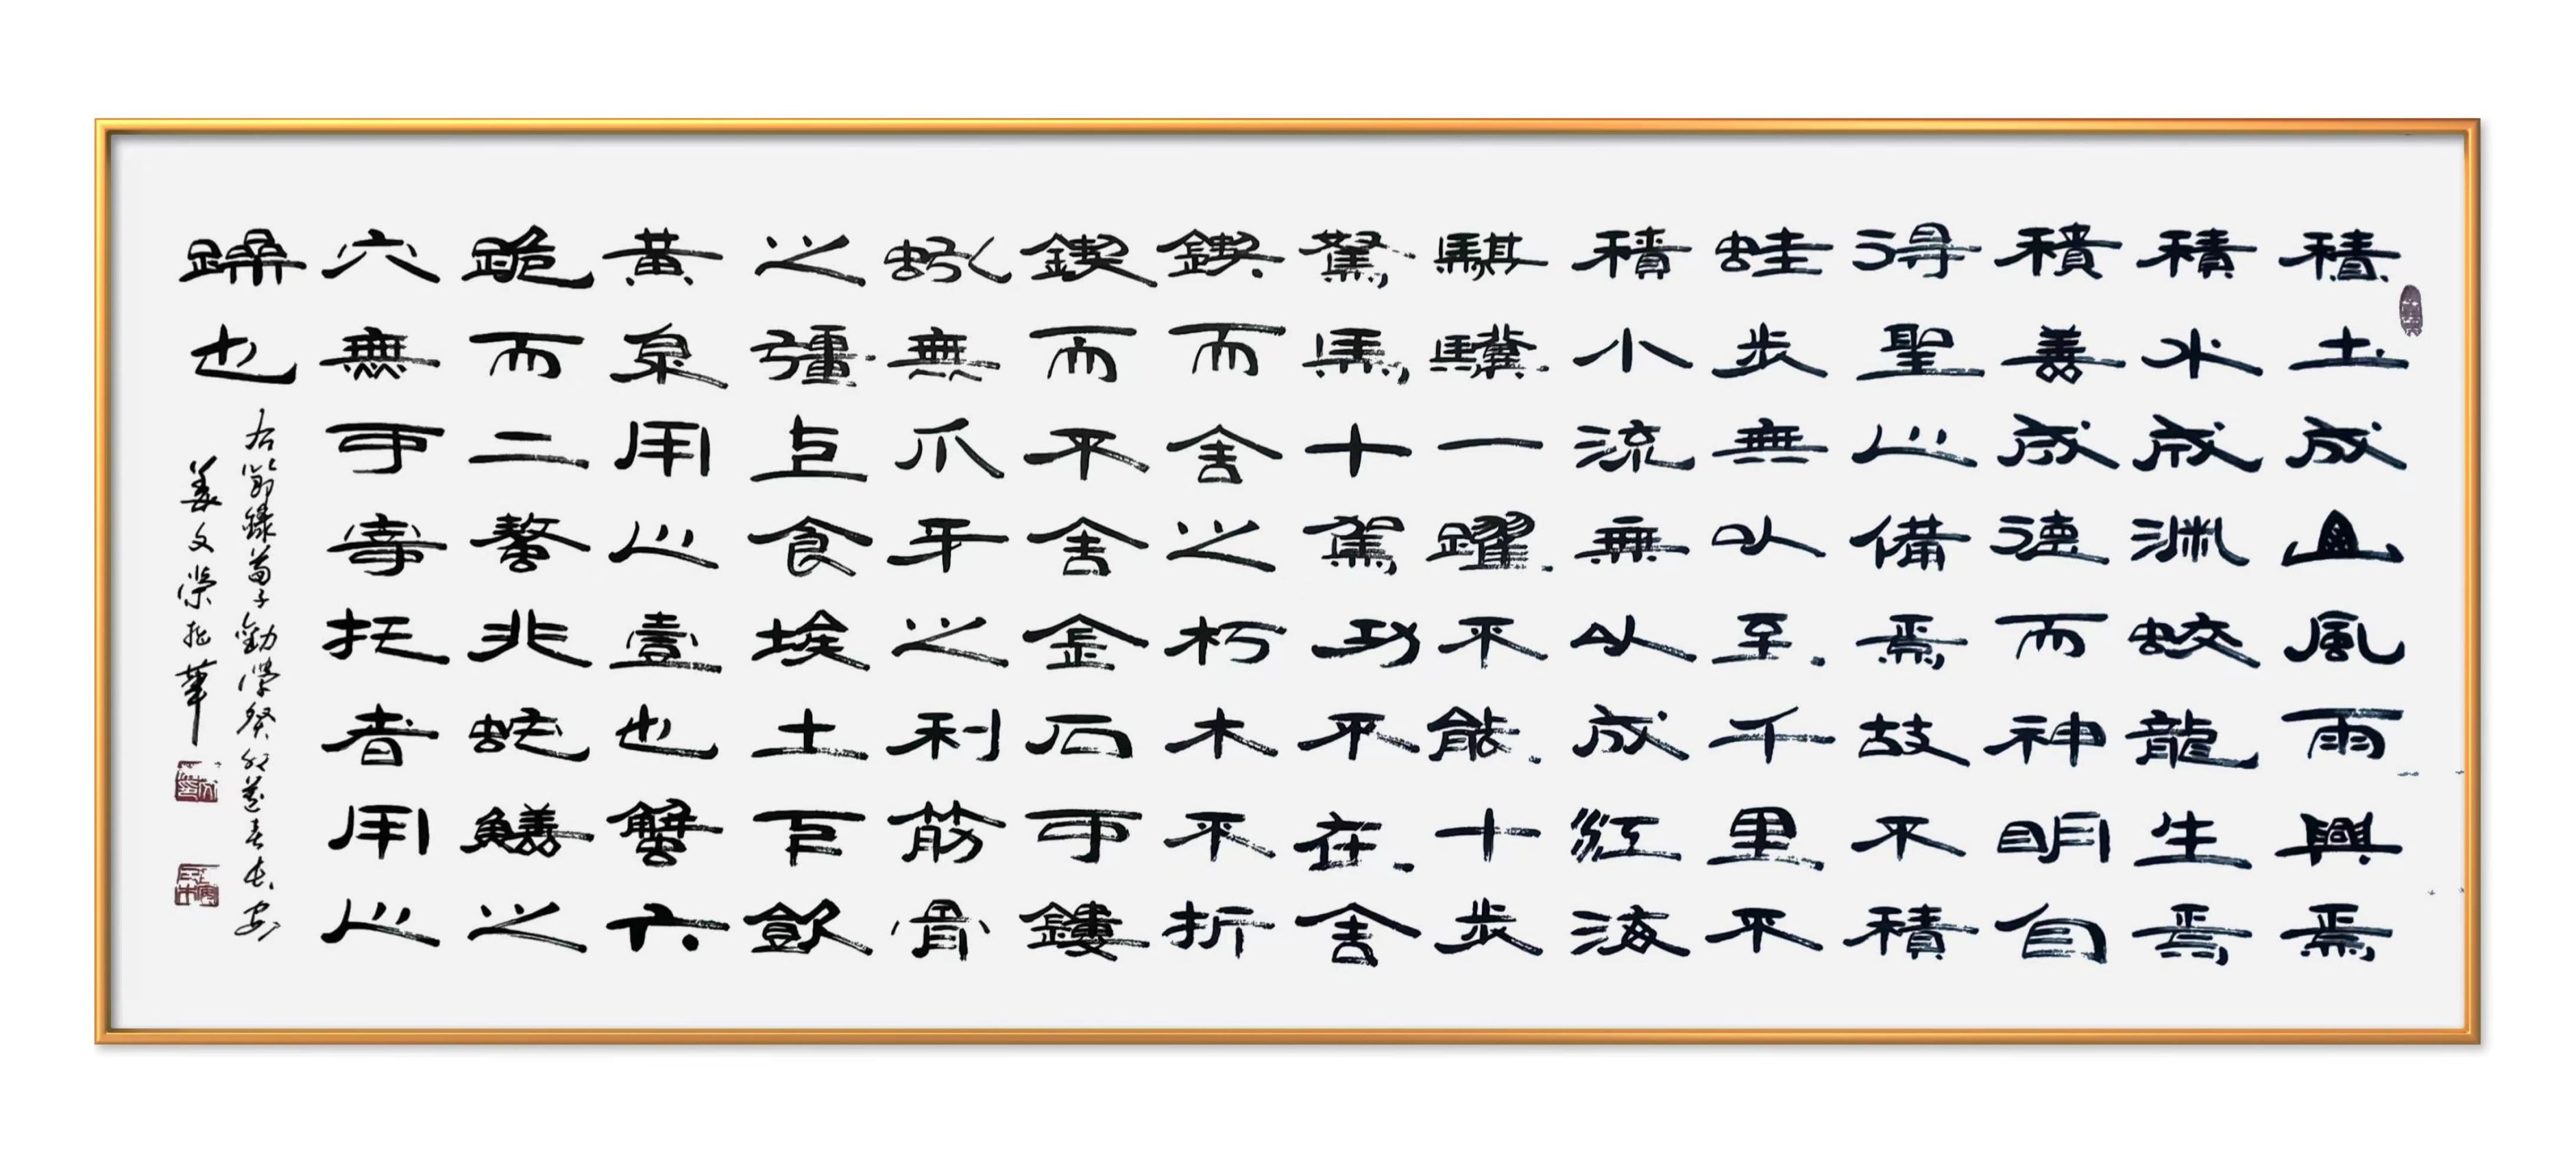 積土成山風雨興焉
積水成渊蛟龍生焉
積善成德而神明自
得聖心備焉故不積
蛙步無以至千里不
積小流無以成江海
騏驥一躍不能十步
駑馬十駕功不在舍
鍥而舍之朽木不折
鍥而不舍金石可鏤
蚓無爪牙之利筋骨
之彊上食埃土下飲
黄泉用心壹也蟹六
跪而二螯非蛇鱔之
穴無可寄托者用心
躁也
右節録荀子勸學癸卯暮春長安
姜文榮拙筆